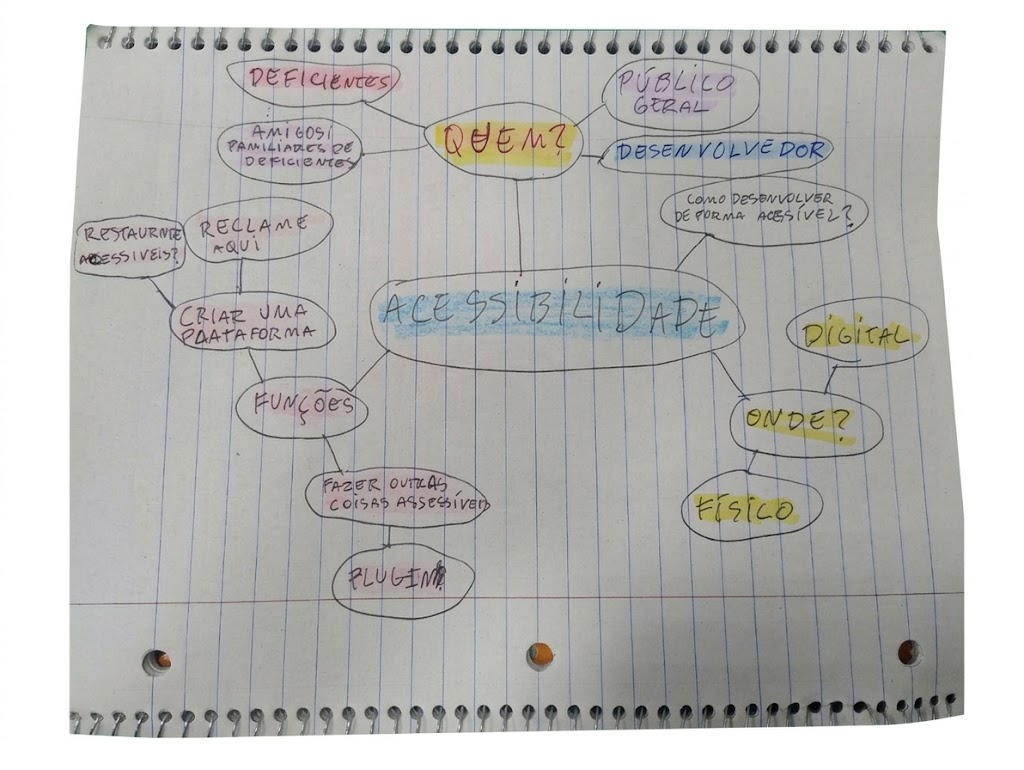 DEFICIENTES
PÚBLICO
GERAL
QUEM?
AMIGOS/
FAMILIARES DE
DEFICIENTES
DESENVOLVEDOR
COMO DESENVOLVER
DE FORMA ACESSÍVEL?
RESTAURNTE
ACESSIVEIS?
RECLAME
AQUI
CRIAR UMA
PLATAFORMA
ACESSIBILIDADE
DIGITAL
FUNÇÕES
ONDE?
FAZER OUTRAS
COISAS ASSESSÍVEIS
FÍSICO
PLUGIN?